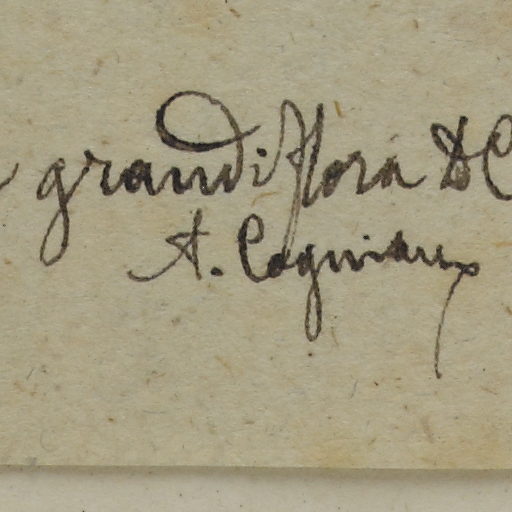 grandiflora DC
A. Cogniaux